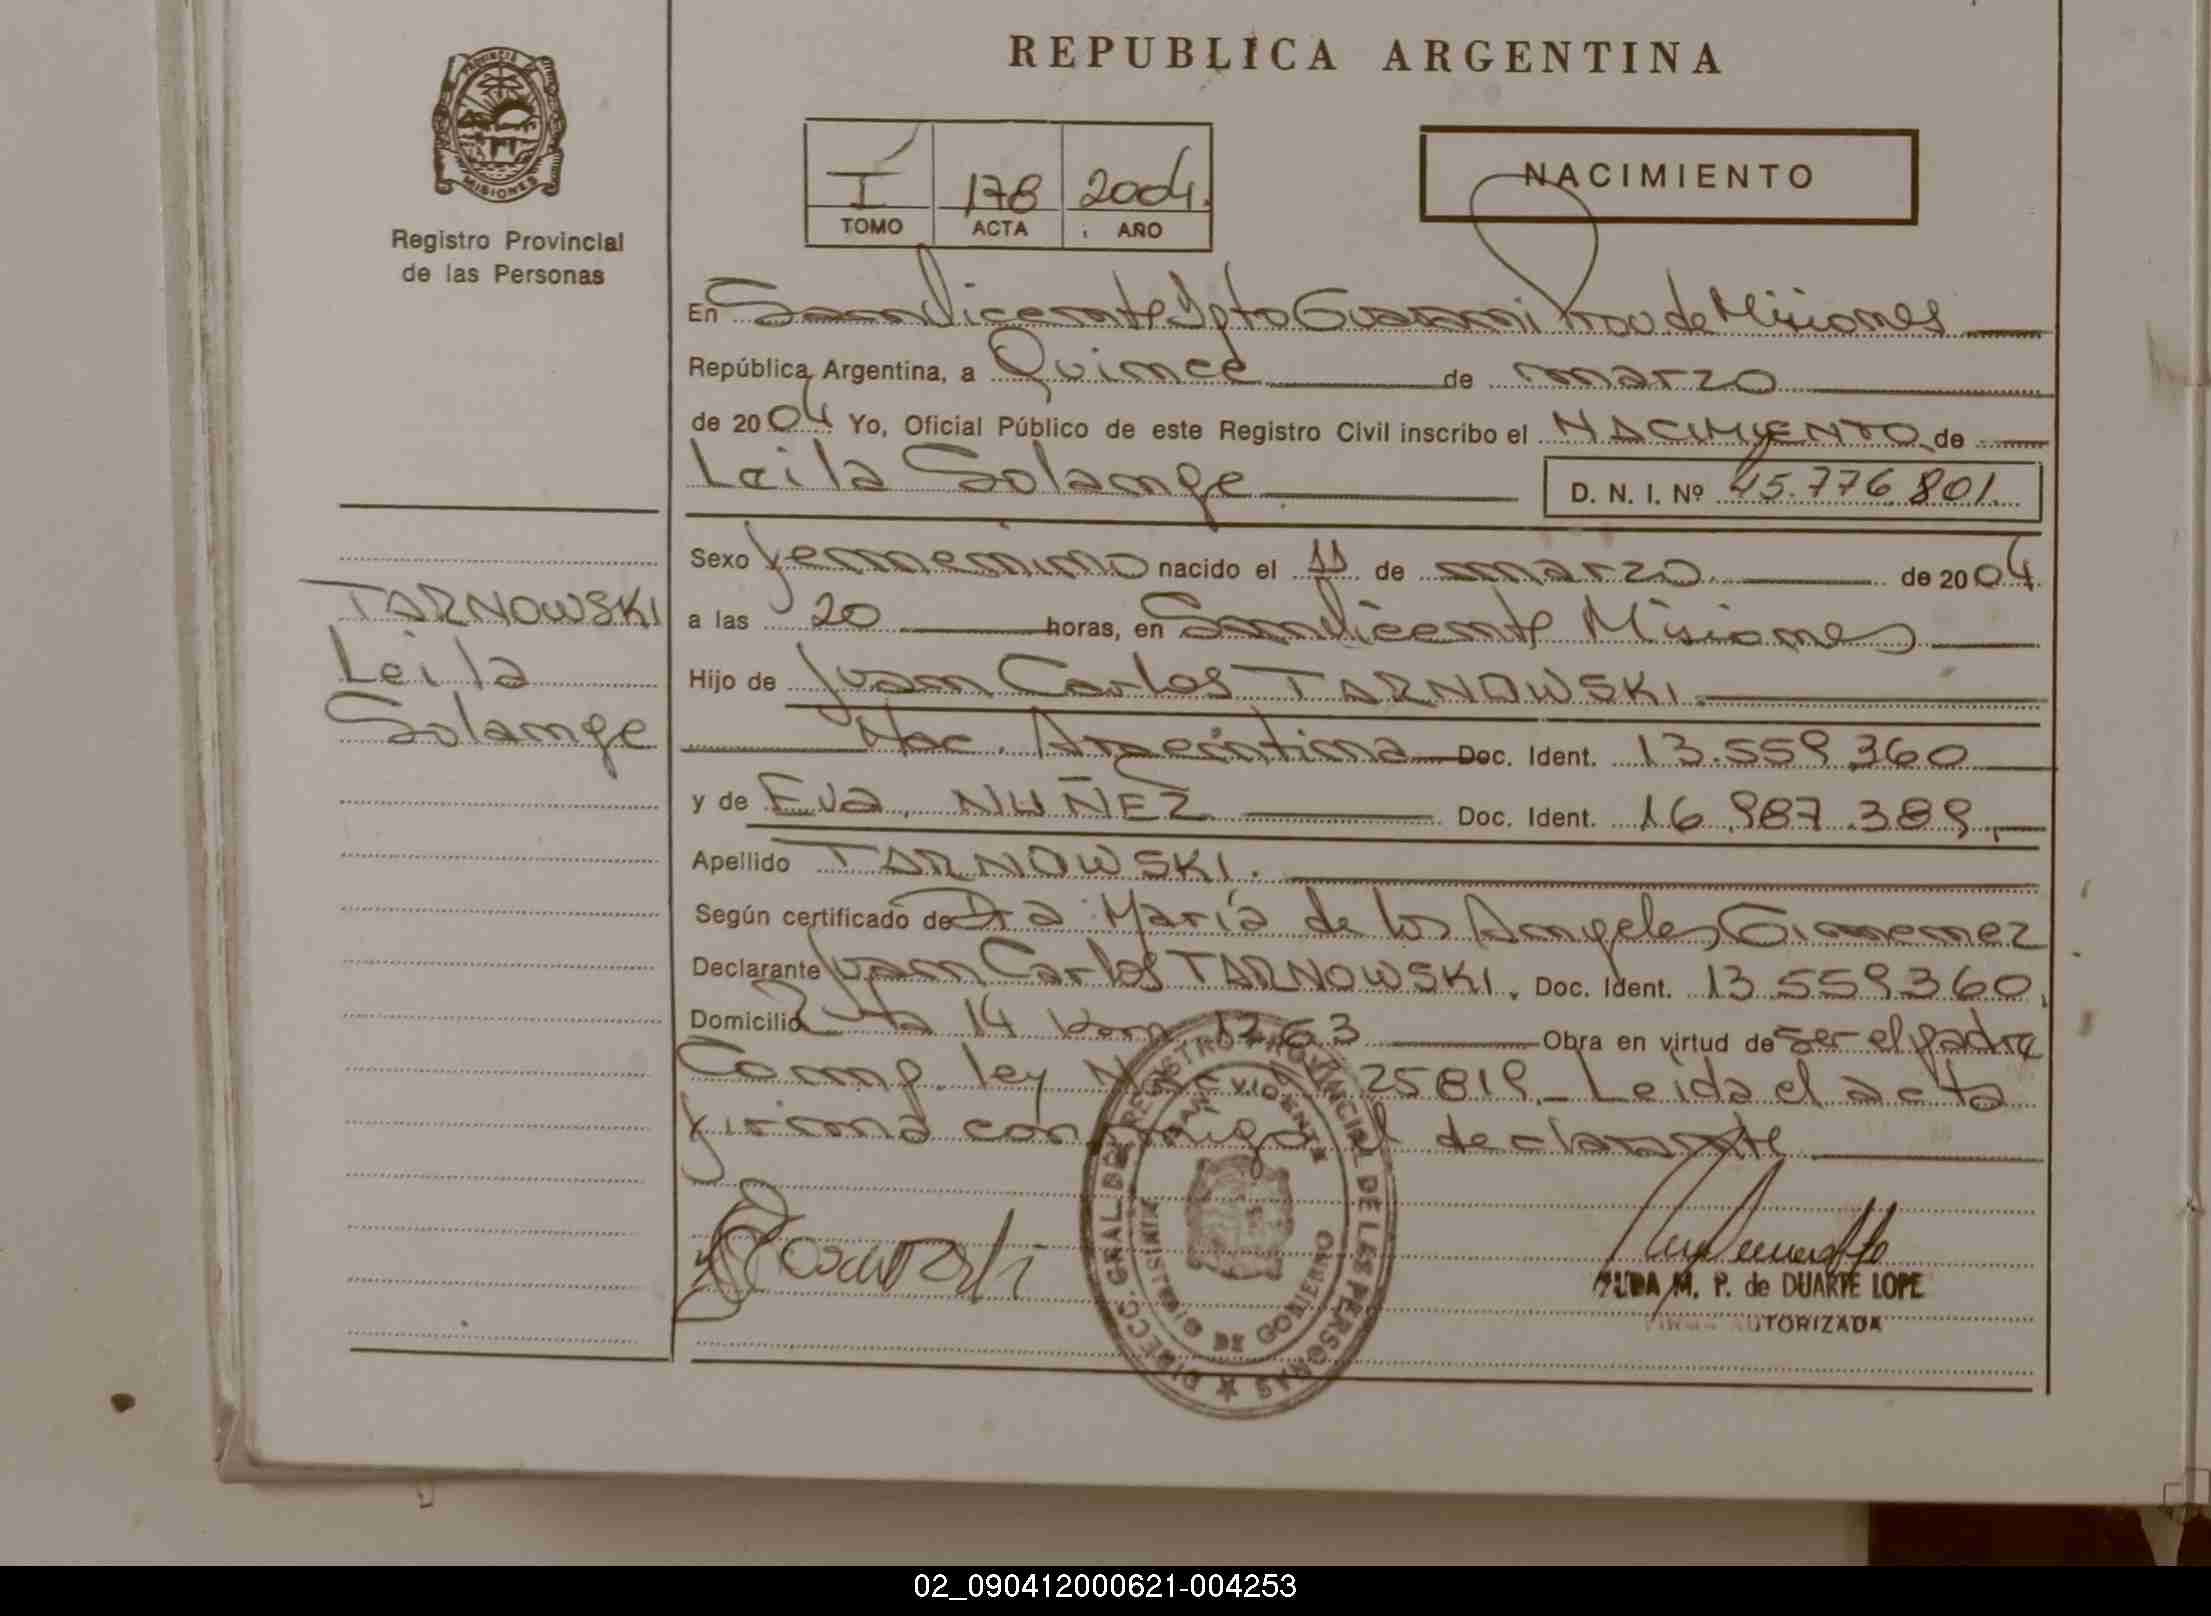 REPUBLICA ARGENTINA
PROVINCIA DE
MISIONES
Registro Provincial
de las Personas
I 178 2004.
TOMO ACTA AÑO
NACIMIENTO
En San Vicente Dpto Guarani Prov de Misiones
República Argentina, a Quince de marzo
de 2004 Yo, Oficial Público de este Registro Civil inscribo el NACIMIENTO de
Leila Solange D. N. I. Nº 45.776.801.
Sexo femenino nacido el 11 de marzo de 2004.
a las 20 horas, en San Vicente Misiones
Hijo de Juan Carlos TARNOWSKI.
Nac. Argentina Doc. Ident. 13.559.360
y de Eva NUÑEZ Doc. Ident. 16.987.389.
Apellido TARNOWSKI.
Según certificado de Dra María de los Angeles Gimenez
Declarante Juan Carlos TARNOWSKI. Doc. Ident. 13.559.360.
Domicilio Ruta 14 km 1263 Obra en virtud de ser el padre
Comp. ley N 25819._ Leida el acta
firma conmigo el declarante
TARNOWSKI
Leila
Solange
DIRECC. GRAL. DEL REGISTRO PROVINCIAL DE LAS PERSONAS
MINISTERIO DE GOBIERNO
M. P. de DUARTE LOPE
FIRMA AUTORIZADA
02_090412000621-004253